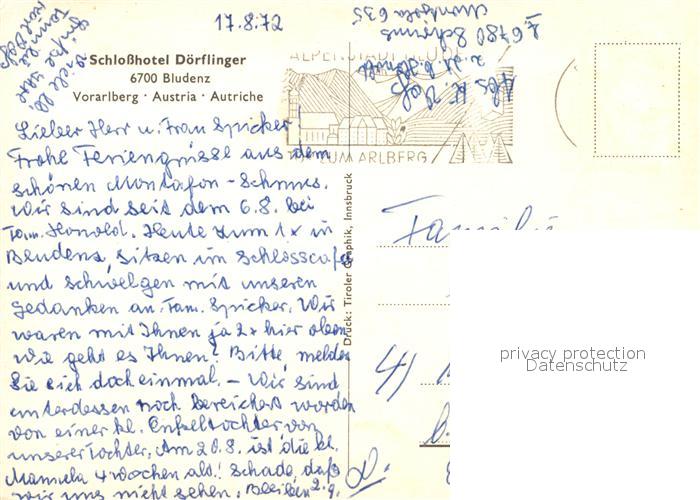 17.8.72
Schloßhotel Dörflinger
6700 Bludenz
Vorarlberg · Austria · Autriche
Lieber Herr u. Frau Spicker!
Frohe Feriengrüsse aus dem
schönen Montafon - Schruns.
Wir sind seit dem 6.8. bei
Fam. Honold. Heute zum 1x in
Bludenz, sitzen im Schlosscafe
und schwelgen mit unseren
Gedanken an Fam. Spicker. Wir
waren mit Ihnen ja 2x hier oben
Wie geht es Ihnen? Bitte melden
Sie sich doch einmal. - Wir sind
unterdessen noch bereichert worden
von einer kl. Enkeltochter von
unserer Tochter. Am 20.8. ist die kl.
Manuela 4 Wochen alt! Schade, daß
wir uns nicht sehen. Bleiben 2.9.
Viele lb.
Grüße
A 6780 Schruns
635
ALPENSTADT BLUDENZ
ZUM ARLBERG
Druck: Tiroler Graphik, Innsbruck
Familie
4)
privacy protection
Datenschutz